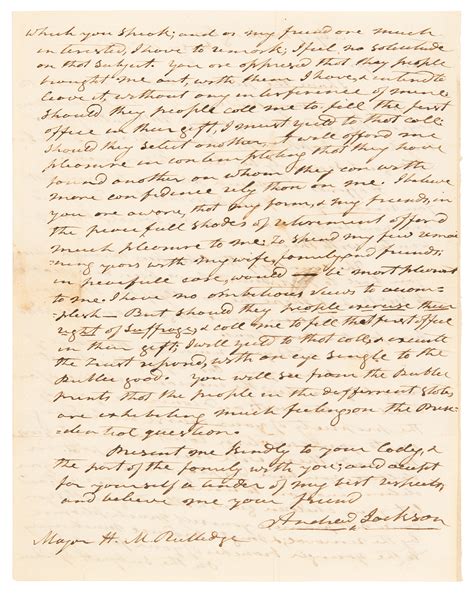 which you speak; and as my friend one much
interested, I have to remark; I feel no solicitude
on that subject. You are apprised that they people
brought me out, with them I have, & intend to
leave it, without any interference of mine
should they people call me to fill the first
office in their gift, I must yield to that call
should they select another, it will afford me
pleasure in contemplating that they have
found another on whom they can with
more confidence rely than on me. I believe
you are aware, that my farm, & my friends, in
the peacefull shades of retirement afford
much pleasure to me; to spend my few remai
ning years with my wife, family, and friends,
in peacefull ease, would be most pleasant
to me. I have no ambitious views to accom-
plish — But should they people exercise their
right of suffrage, & call me to fill that first office
in their gift, I will yield to that call, & execute
the trust reposed, with an eye single to the
Publick good. You will see from the Publick
prints that the people in the different states
are exhibiting much feeling on the Presi
dential question.
Present me kindly to your Lady, &
the part of the family with you; and accept
for yourself a tender of my best respects,
and believe me your friend
Andrew Jackson
Major H. M. Rutledge